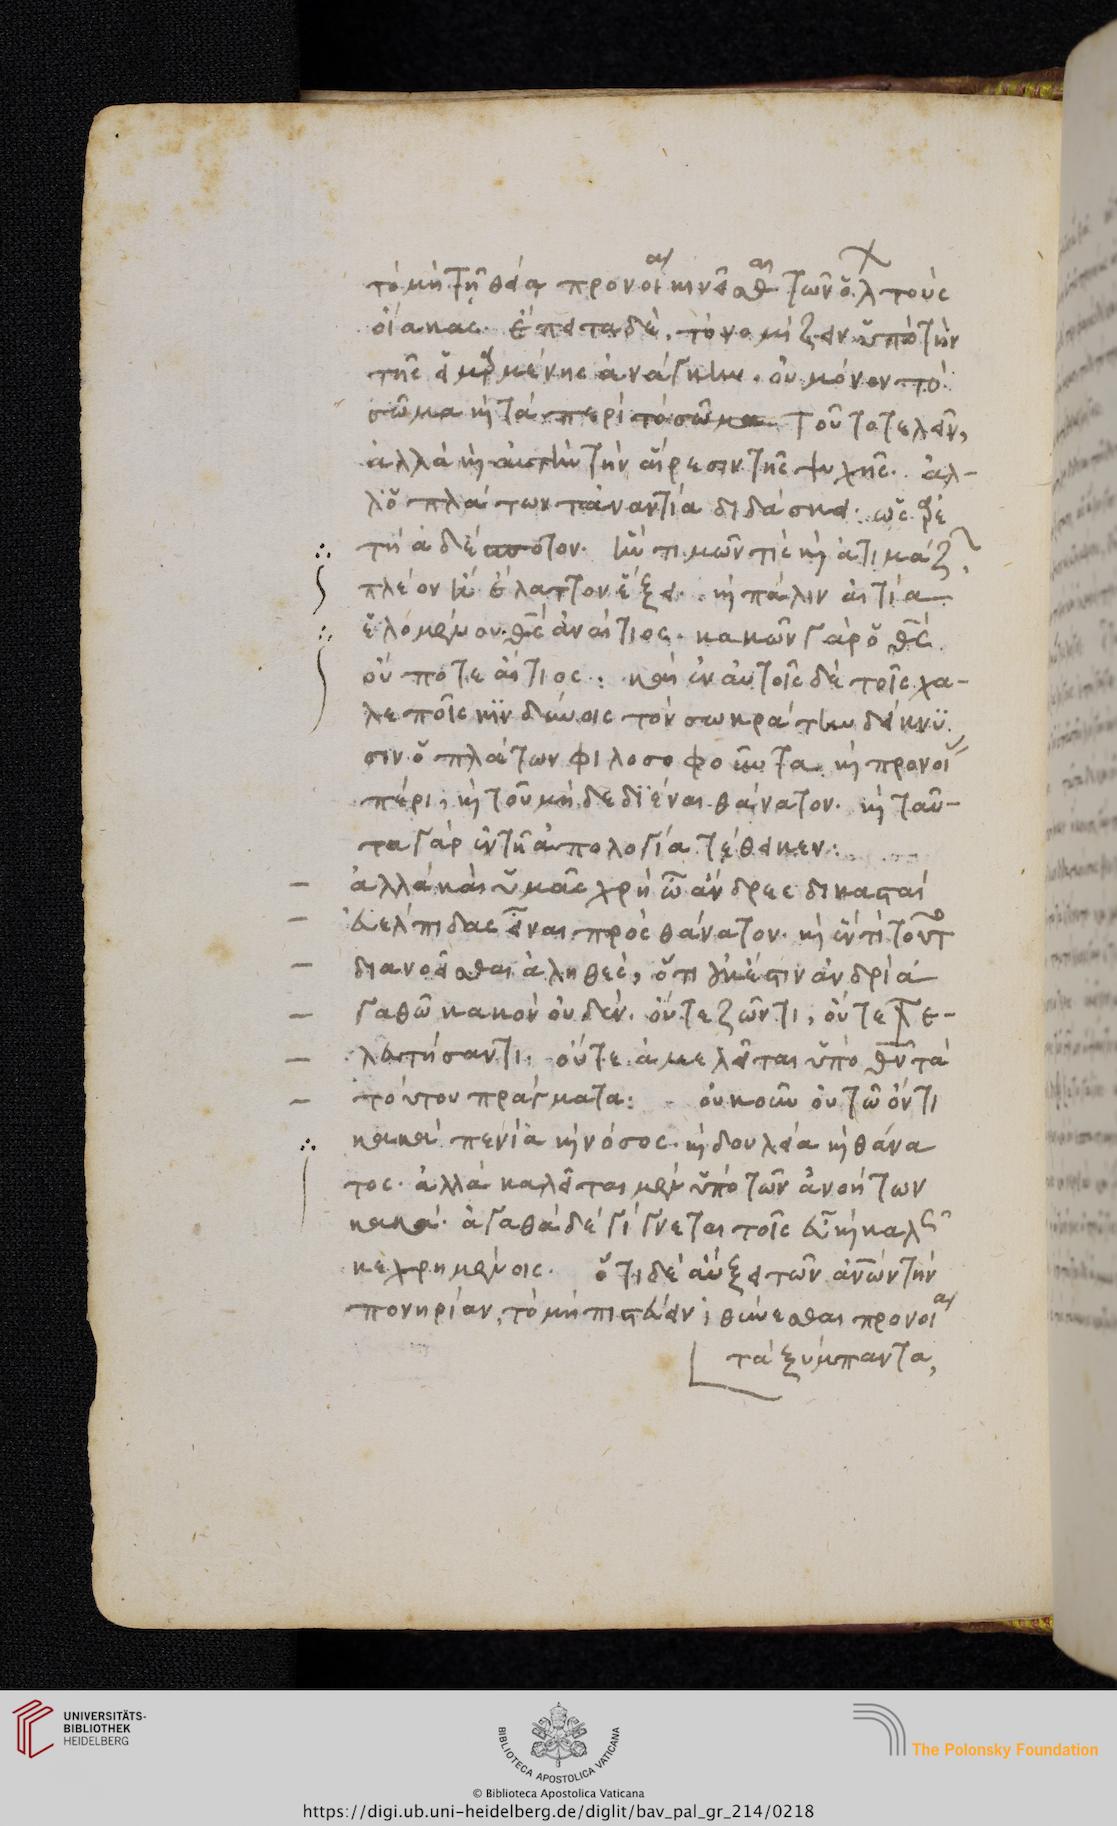 τὸ μὴ τῇ θείᾳ προνοίᾳ κινεῖσθαι τῶν ὅλων τοὺς
οἴακας. ἔπειτα δὲ, τὸ νομίζειν ὑπὸ τὴν
τῆς εἱμαρμένης ἀνάγκην. οὐ μόνον τὸ
σῶμα καὶ τὰ περὶ τὸ σῶμα τουτοτελεῖν,
ἀλλὰ καὶ αὐτὴν τὴν αἵρεσιν τῆς ψυχῆς. ἀλ-
λ' ὁ πλάτων τἀναντία διδάσκει. ὡς ἀρε
τὴ ἀδέσποτον. ἣν τιμῶν τις καὶ ἀτιμάζων,
πλέον ἢ ἔλαττον ἕξει. καὶ πάλιν αἰτία
ἑλομένου. θεὸς ἀναίτιος. κακῶν γὰρ ὁ θεὸς
οὔ ποτε αἴτιος: καὶ ἐν αὐτοῖς δὲ τοῖς χα-
λεποῖς κινδύνοις τὸν σωκράτην δείκνυ
σιν ὁ πλάτων φιλοσοφοῦντα καὶ προνοίας
πέρι, καὶ τοῦ μὴ δεδιέναι θάνατον. καὶ ταῦ-
τα γὰρ ἐν τῇ ἀπολογίᾳ τέθεικεν:
ἀλλὰ καὶ ὑμᾶς χρὴ ὦ ἄνδρες δικασταὶ
εὐέλπιδας εἶναι πρὸς θάνατον. καὶ ἕν τι τοῦτο
διανοεῖσθαι ἀληθὲς, ὅτι οὐκ ἔστιν ἀνδρὶ ἀ
γαθῶ κακὸν οὐδέν. οὔτε ζῶντι, οὔτε τε-
λευτήσαντι. οὔτε ἀμελεῖται ὑπὸ θεῶν τὰ
τούτου πράγματα: οὐκοῦν οὐ τῷ ὄντι
κακὰ πενία καὶ νόσος. καὶ δουλεία καὶ θάνα
τος. ἀλλὰ καλεῖται μὲν ὑπὸ τῶν ἀνοήτων
κακά. ἀγαθὰ δὲ γίγνεται τοῖς εὖ καὶ καλῶς
κεχρημένοις. ὅτι δὲ αὔξει τῶν ἀνθρώπων τὴν
πονηρίαν, τὸ μὴ πιστεύειν ἰθύνεσθαι προνοίᾳ
τὰ ξύμπαντα,
UNIVERSITÄTS-
BIBLIOTHEK
HEIDELBERG
BIBLIOTECA APOSTOLICA VATICANA
The Polonsky Foundation
© Biblioteca Apostolica Vaticana
https://digi.ub.uni-heidelberg.de/diglit/bav_pal_gr_214/0218